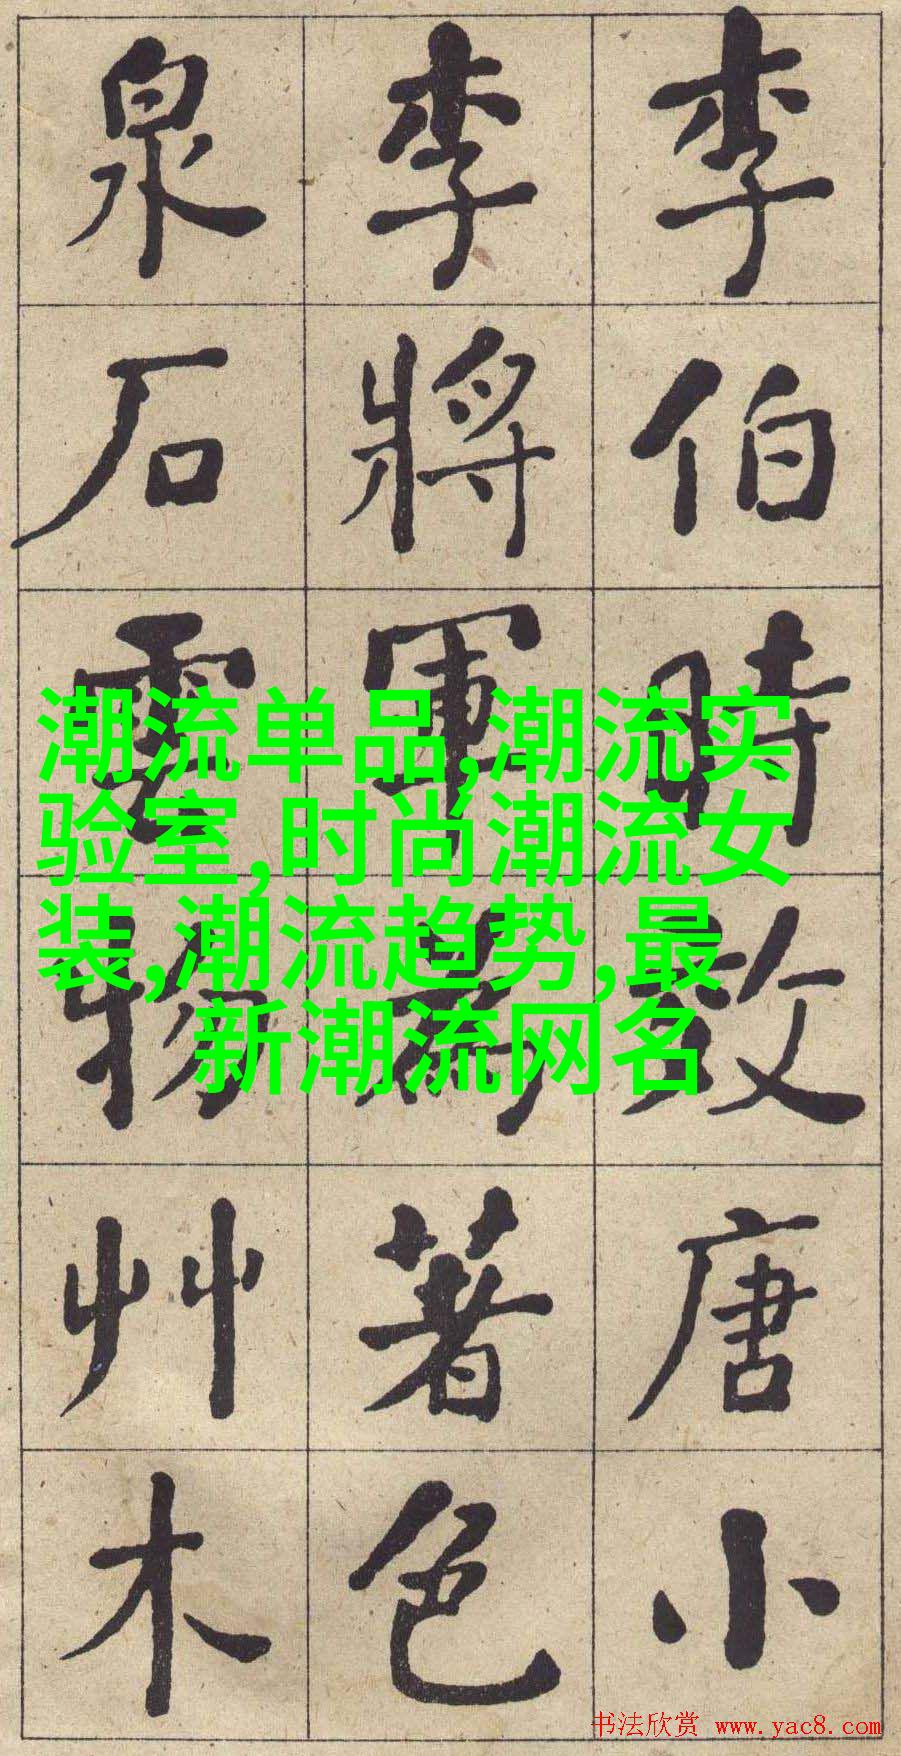 李伯時效唐小
李將軍為著色
泉石雲物艸木
潮流单品,潮流实
验室,时尚潮流女
装,潮流趋势,最
新潮流网名
书法欣赏 www.yac8.com